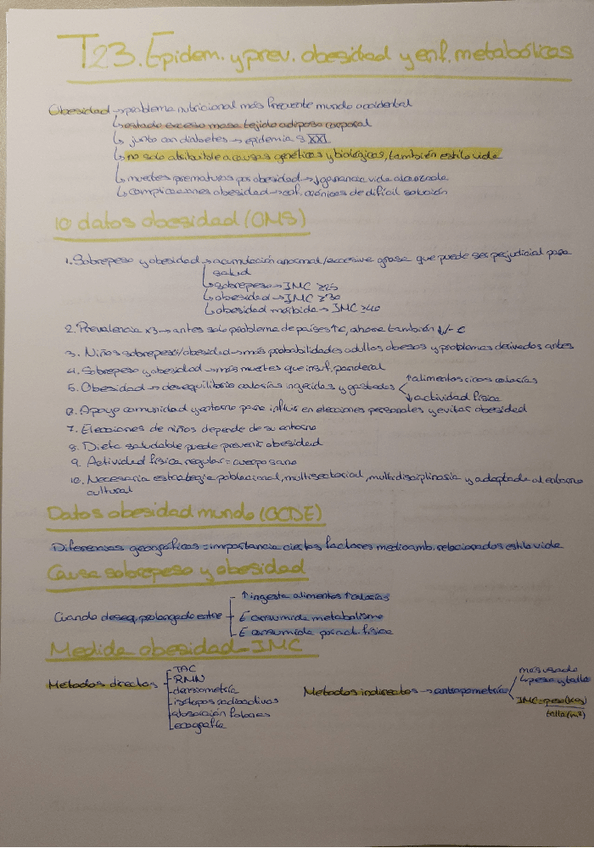 T23. Epidem. y prev. obesidad y enf. metabólicas
Obesidad → problema nutricional más frecuente mundo occidental
↳ estado exceso masa tejido adiposo corporal
↳ junto con diabetes → epidemia S. XXI
↳ no solo atribuible a causas genéticas y biológicas, también estilo vida
↳ muertes prematuras por obesidad → ↓ganancia vida alcanzada
↳ complicaciones obesidad → enf. crónicas de difícil solución
10 datos obesidad (OMS)
1. Sobrepeso y obesidad → acumulación anormal/excesiva grasa que puede ser perjudicial para
salud
↳ sobrepeso → IMC ≥25
↳ obesidad → IMC ≥30
↳ obesidad mórbida → IMC ≥40
2. Prevalencia x3 → antes solo problema de países ↑€, ahora también ↓/- €
3. Niños sobrepeso/obesidad → más probabilidades adultos obesos y problemas derivados antes
4. Sobrepeso y obesidad → más muertes que insuf. ponderal
5. Obesidad → desequilibrio calorías ingeridas y gastadas ↑ alimentos ricos calorías
↓ actividad física
6. Apoyo comunidad y entorno para influir en elecciones personales y evitar obesidad
7. Elecciones de niños depende de su entorno
8. Dieta saludable puede prevenir obesidad
9. Actividad física regular = cuerpo sano
10. Necesaria estrategia poblacional, multisectorial, multidisciplinaria y adaptada al entorno
cultural
Datos obesidad mundo (OCDE)
Diferencias geográficas = importancia ciertos factores medioamb. relacionados estilo vida
Causa sobrepeso y obesidad
Cuando deseq. prolongado entre
↑ ingesta alimentos ↑calorías
E consumida metabolismo
E consumida por act. física
Medida obesidad - IMC
Métodos directos
TAC
RMN
densiometría
isótopos radioactivos
absorción fotones
ecografía
Métodos indirectos → antropometría
más usado
↳ peso y talla
IMC = peso (kg)
talla (m²)